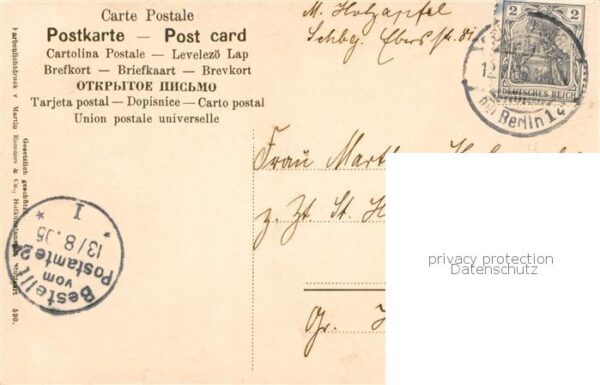 Carte Postale
Postkarte — Post card
Cartolina Postale — Levelező Lap
Brefkort — Briefkaart — Brevkort
ОТКРЫТОЕ ПИСЬМО
Tarjeta postal — Dopisnice — Carto postal
Union postale universelle
M. Holzapfel
Schbg. Ebers str. 81
2
DEUTSCHES REICH
bei Berlin 1
Frau
z. Zt. St.
Gr.
privacy protection
Datenschutz
I
13/8.05
Bestellt
vom
Postamte 24
Farbenlichtdruck v. Martin Rommel & Co.,
Gesetzlich geschützt
590.